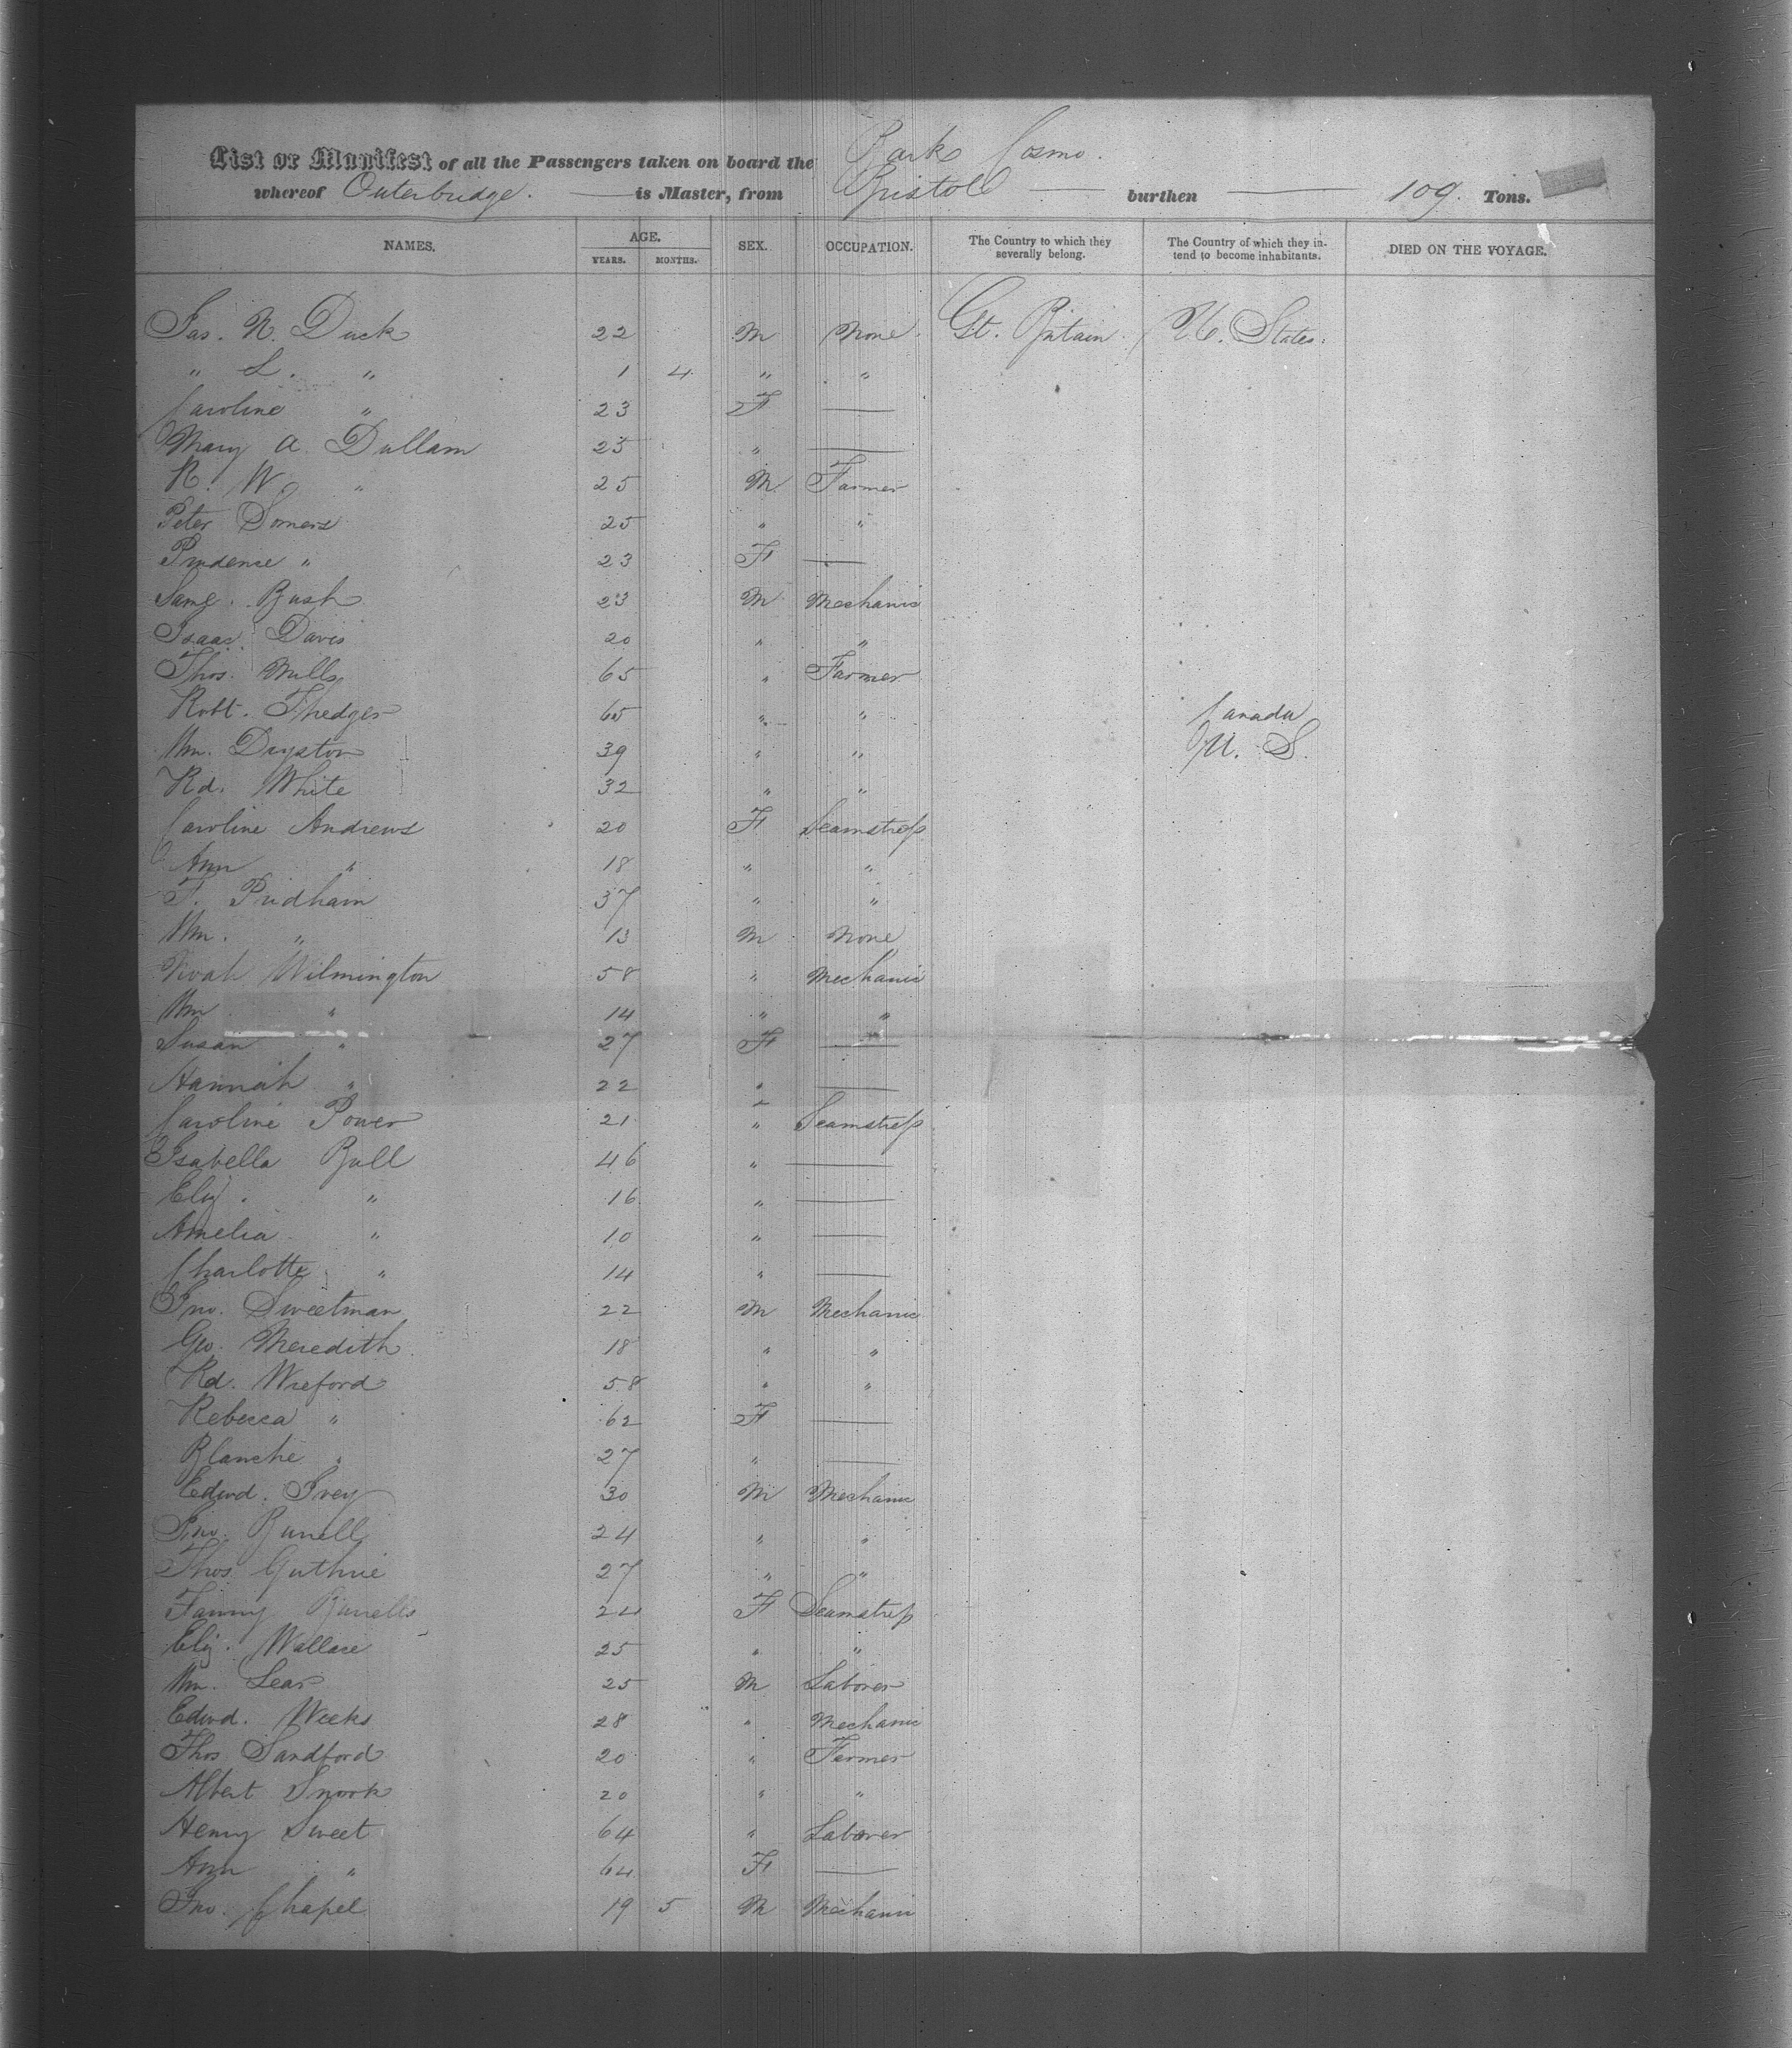 List or Manifest of all the Passengers taken on board the Bark Cosmo.
whereof Outerbridge. is Master, from Bristol burthen 109. Tons.
NAMES. AGE. YEARS. MONTHS. SEX. OCCUPATION. The Country to which they severally belong. The Country of which they intend to become inhabitants. DIED ON THE VOYAGE.
Jas. N. Duck 22 M None. Gt. Britain U. States.
" L. " 1 4 " "
Caroline " 23 F —
Mary A. Dullam 25 " —
R. W. " 25 M Farmer
Peter Somers 25 " "
Prudence " 23 F —
Saml. Bush 23 M Mechanic
Isaac Davis 20 " "
Thos. Mills 65 " Farmer
Robt. 65 " " Canada
Wm. Dryston 39 " " U. S.
Rd. White 32 " "
Caroline Andrews 20 F Seamstress
Ann " 18 " "
F. Pridham 37 " "
Wm. " 13 M None
Noah Wilmington 58 " Mechanic
Wm " 14 " "
Susan " 27 F —
Hannah " 22 " —
Caroline Power 21 " Seamstress
Isabella Bull 46 " —
Eliz. " 16 " —
Amelia " 10 " —
Charlotte " 14 " —
Jno. Sweetman 22 M Mechanic
Geo. Meredith 18 " "
Rd. Wreford 58 " "
Rebecca " 62 F —
Blanche " 27 " —
Edwd. Ivey 30 M Mechanic
Jno. 24 " "
Thos. Guthrie 27 " "
Fanny 24 F Seamstress
Eliz. Wallace 25 " "
Wm. Lear 25 M Laborer
Edwd. Weeks 28 " Mechanic
Thos. Sandford 20 " Farmer
Albert Snook 20 " "
Henry Sweet 64 " Laborer
Ann " 64 F —
Jno. Chapel 19 5 M Mechanic